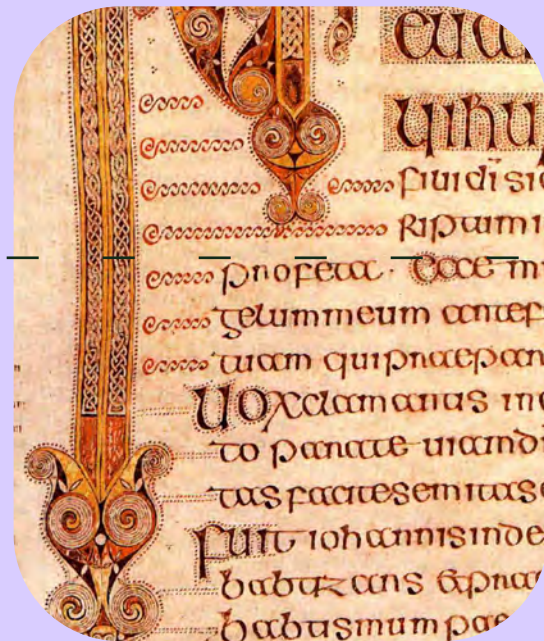 eua
ii ihu
fili di sic
riptum
profeta · Ecce mi
gelum meum ante f
tuam qui praepar
Uox clamantis in
to parate uiam d
tas facite semitas e
Fuit iohannis in de
babtizans & prae
babtismum pae